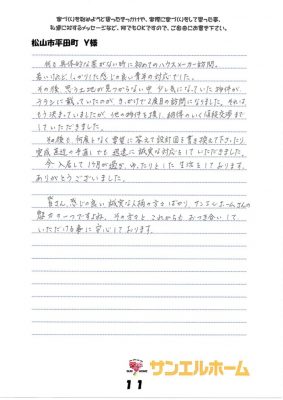 家づくりを始めようと思ったきっかけや、実際に家づくりをして思った事、
私達に対するメッセージなど、何でもOKですので、ご自由にお書き下さい。
松山市平田町 Y様
何も具体的な案がない時に初めてのハウスメーカー訪問。
若いけれどしっかりした感じの良い青年の対応でした。
その後、思う土地が見つからない中 少し気になっていた物件が
チラシに載っていたのが きっかけで2度目の訪問になりました。それは
もう決まっていましたが、他の物件を捜し 納得のいく値段交渉まで
していただきました。
その後も何度となく要望に答えて設計図を書き換えて下さったり
完成間近の手直しでも迅速に誠実な対応をしていただきました。
今、入居して1ヶ月が過ぎ、ゆったりとした生活をしております。
ありがとうございました。
皆さん、感じの良い誠実な人柄の方々ばかり サンエルホームさんの
魅力の一つですよね。その方々と これからもお つき合いして
いただける事に安心しております。
サンエルホーム
11